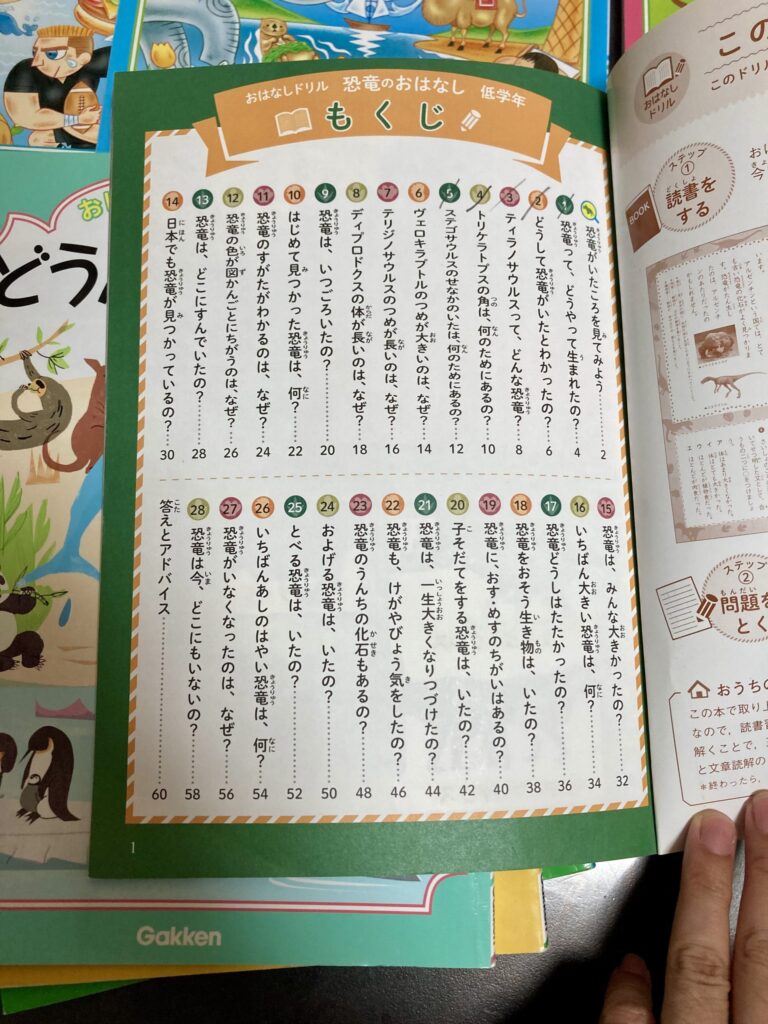 おはなしドリル 恐竜のおはなし 低学年
もくじ
恐竜がいたころを見てみよう……2
1 恐竜って、どうやって生まれたの?……4
2 どうして恐竜がいたとわかったの?……6
3 ティラノサウルスって、どんな恐竜?……8
4 トリケラトプスの角は、何のためにあるの?……10
5 ステゴサウルスのせなかのいたは、何のためにあるの?……12
6 ヴェロキラプトルのつめが大きいのは、なぜ?……14
7 テリジノサウルスのつめが長いのは、なぜ?……16
8 ディプロドクスの体が長いのは、なぜ?……18
9 恐竜は、いつごろいたの?……20
10 はじめて見つかった恐竜は、何?……22
11 恐竜のすがたがわかるのは、なぜ?……24
12 恐竜の色が図かんごとにちがうのは、なぜ?……26
13 恐竜は、どこにすんでいたの?……28
14 日本でも恐竜が見つかっているの?……30
15 恐竜は、みんな大きかったの?……32
16 いちばん大きい恐竜は、何?……34
17 恐竜どうしはたたかったの?……36
18 恐竜をおそう生き物は、いたの?……38
19 恐竜に、おす・めすのちがいはあるの?……40
20 子そだてをする恐竜は、いたの?……42
21 恐竜は、一生大きくなりつづけたの?……44
22 恐竜も、けがやびょう気をしたの?……46
23 恐竜のうんちの化石もあるの?……48
24 およげる恐竜は、いたの?……50
25 とべる恐竜は、いたの?……52
26 いちばんあしのはやい恐竜は、何?……54
27 恐竜がいなくなったのは、なぜ?……56
28 恐竜は今、どこにもいないの?……58
答えとアドバイス……60
1
この
このドリル
おはなしドリル
ステップ①
読書をする
BOOK
ステップ②
問題を
とく
おうちの
この本で取り上
なので、読書習
解くことで、
と文章読解の
*終わったら、
どう
Gakken